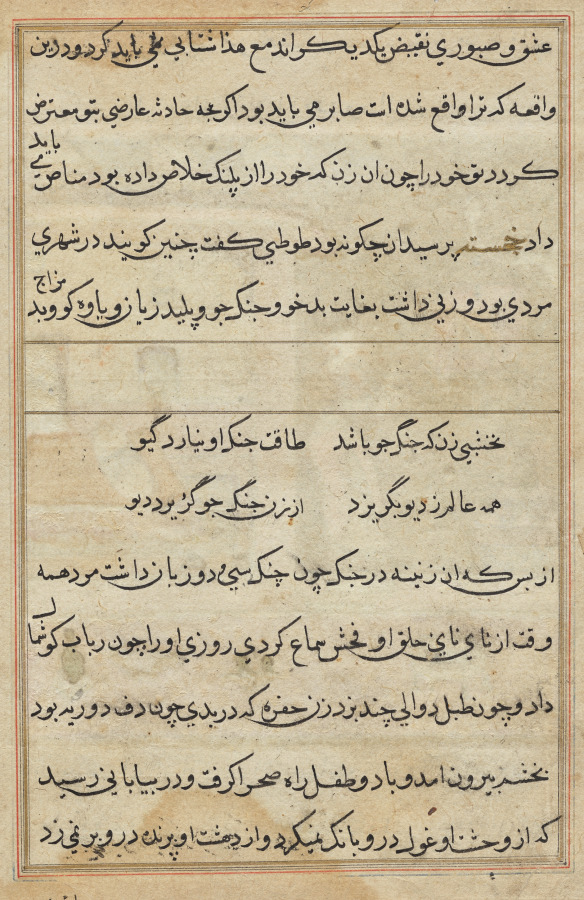 عشق و صبوري نقيض يكديكراند مع هذا شتابي نمي بايد كرد و درين
واقعه كه ترا واقع شده است صابر مي بايد بود اكر چه حادثه عارضي بتو معترض
كردد تو خود را چون ان زن كه خود را از پلنك خلاص داده بود مناص مي بايد
داد خجسته پرسيد ان چكونه بود طوطي كفت چنين كويند در شهري
مردي بود و زني داشت بغايت بدخو و جنك جو و پليد زبان و ياوه كو و بد مزاج
نخشبي زن كه جنگ جو باشد طاقت جنك او نيارد گيو
همه عالم ز ديو بگريزد از زن جنگ جو گريزد ديو
از بس كه ان زنينه در جنك چون چنك سي و دو زبان داشت مرد همه
وقت از ناي ناي حلق او فحش سماع كردي روزي او را چون رباب كوشمال
داد و چون طبل دوالي چند بزد زن حفره كه در بدي چون دف دو رويه بود
بخشم بيرون امد و با دو طفل راه صحرا كرفت و در بياباني رسيد
كه از وحشت او غول درو بانك نميكرد و از دهشت او پرنده درو پر نمي زد